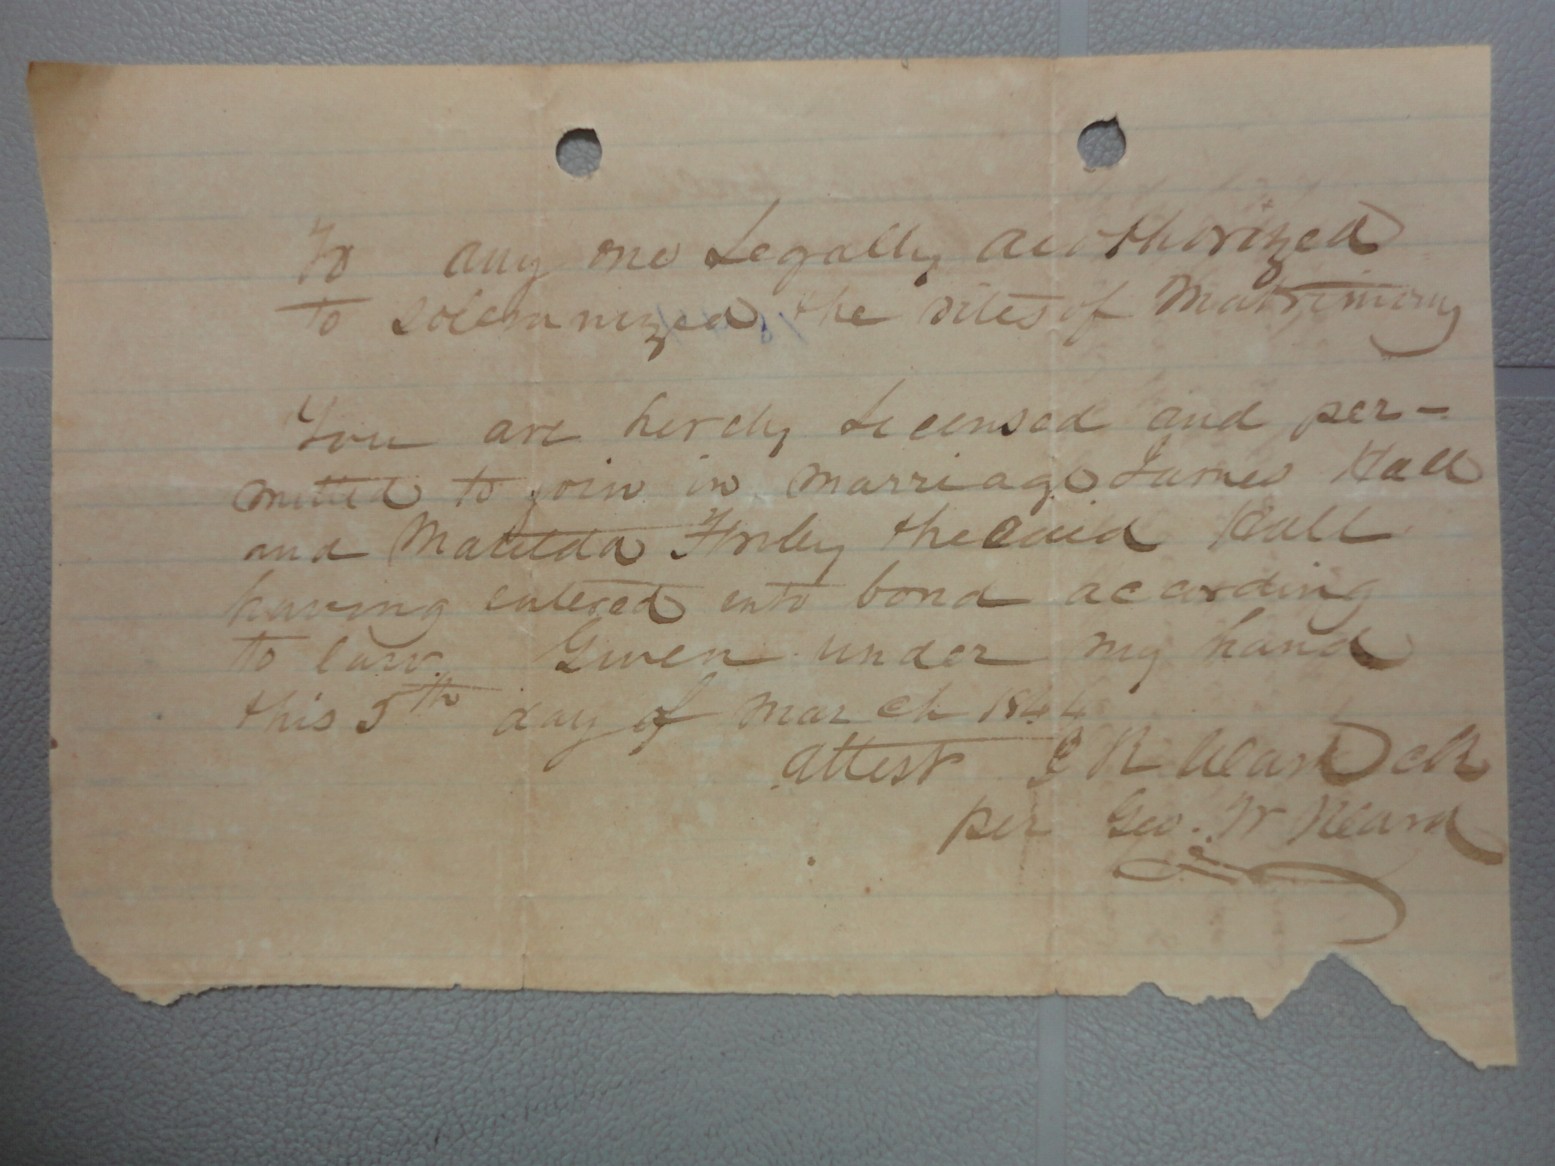 To any one Legally authorized
to solemnized the rites of Matrimony
You are herely Licensed and per-
mitted to join in marriage James Hall
and Matilda the said Hall
having entered into bond according
to law. Given under my hand
this 5th day of March 1844
attest
per Geo. W Heard